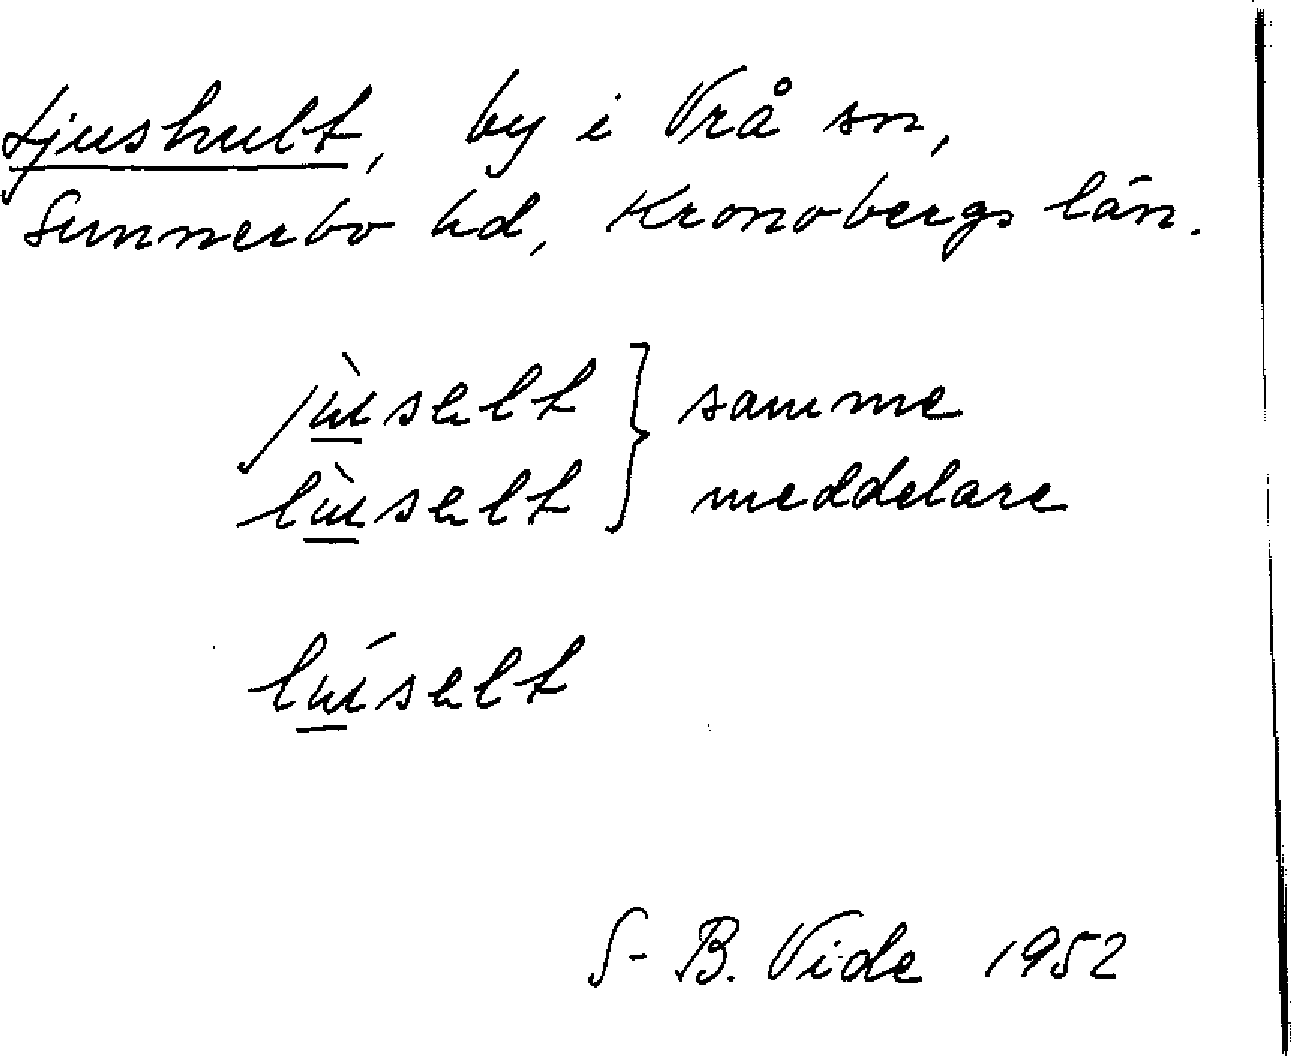 Ljushult, by i Vrå sn,
Sunnerbo hd, Kronobergs län.
jùselt } samme
lùselt } meddelare
lúselt
S-B. Vide 1952